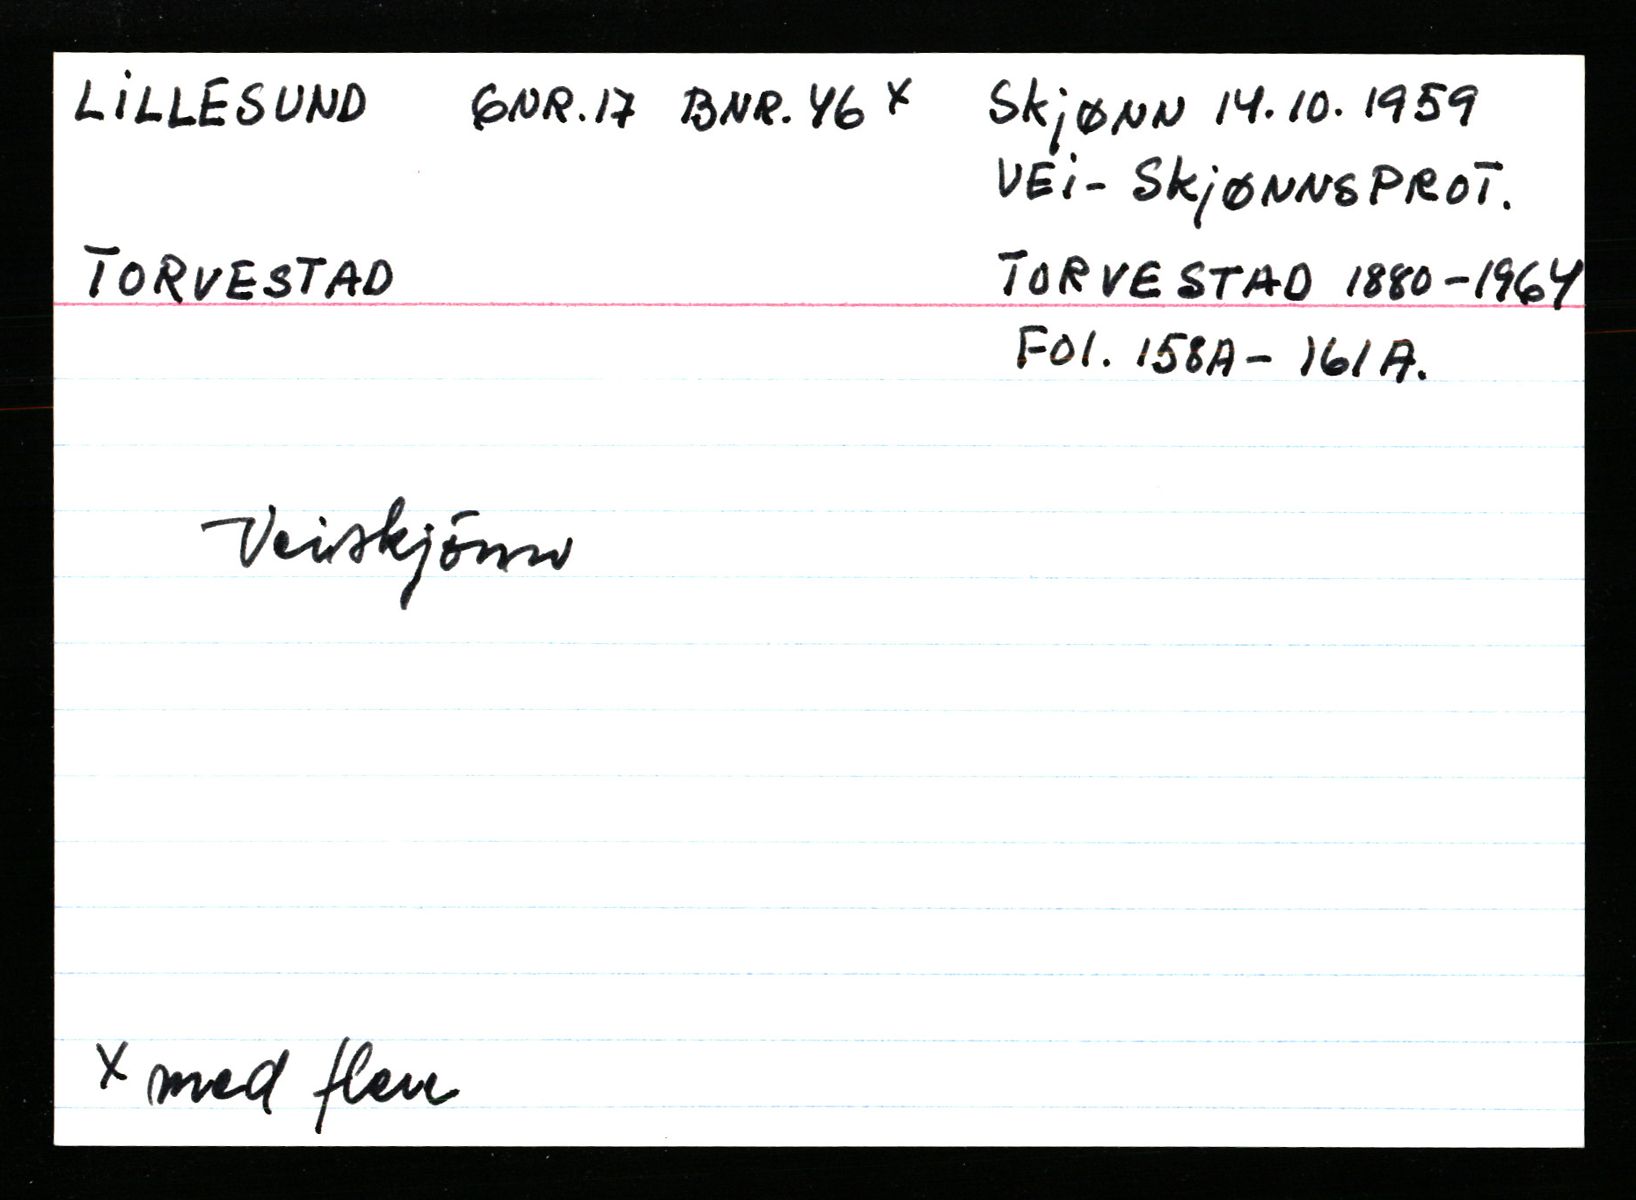 LILLESUND GNR. 17 BNR. 46 x Skjønn 14.10.1959
VEI- SKJØNNSPROT.
TORVESTAD TORVESTAD 1880-1964
Fol. 158A - 161A.
Veiskjönn
x med flere